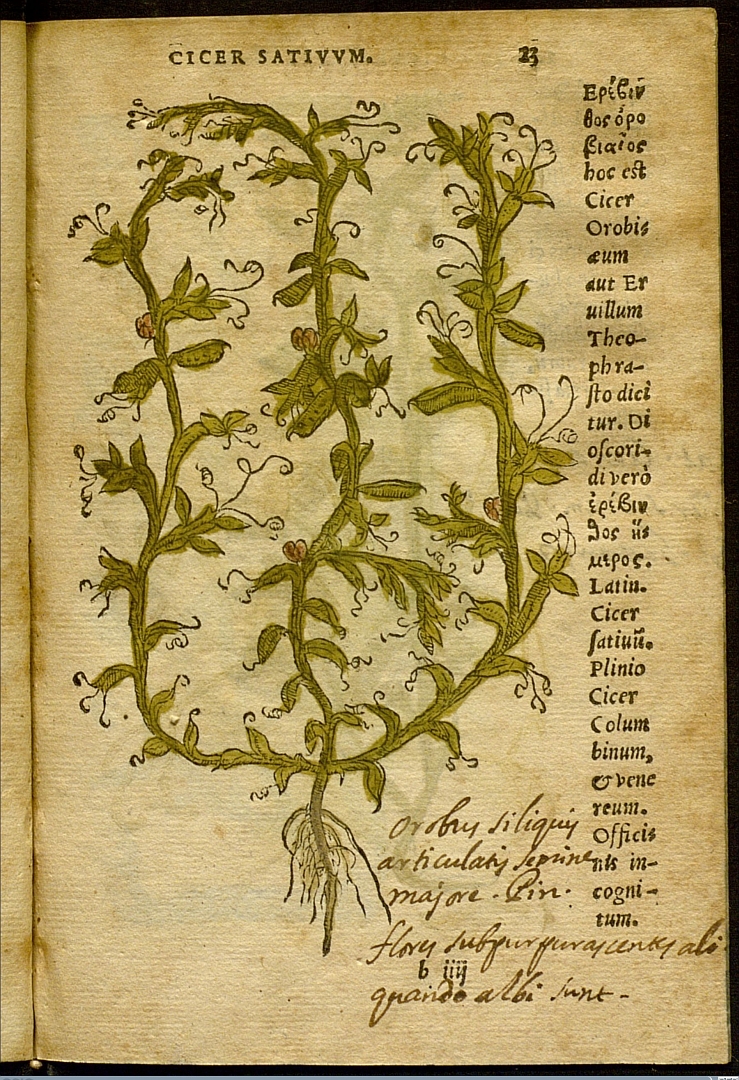 CICER SATIVVM. 23
Ερέβιν
θος ὀρο
βιαῖος
hoc est
Cicer
Orobis
æum
aut Er
uillum
Theo-
phra-
ſto dici
tur. Di
oſcori-
di verò
ἐρέβιν
θος ἥς
μερος.
Latin.
Cicer
ſatiuū.
Plinio
Cicer
Colum
binum,
& vene
reum.
Officis
nis in-
cogni-
tum.
Orobus siliquis
articulatis semine
majore. Pin.
flores subpurpurascentes ali
b iiij
quando albi sunt -